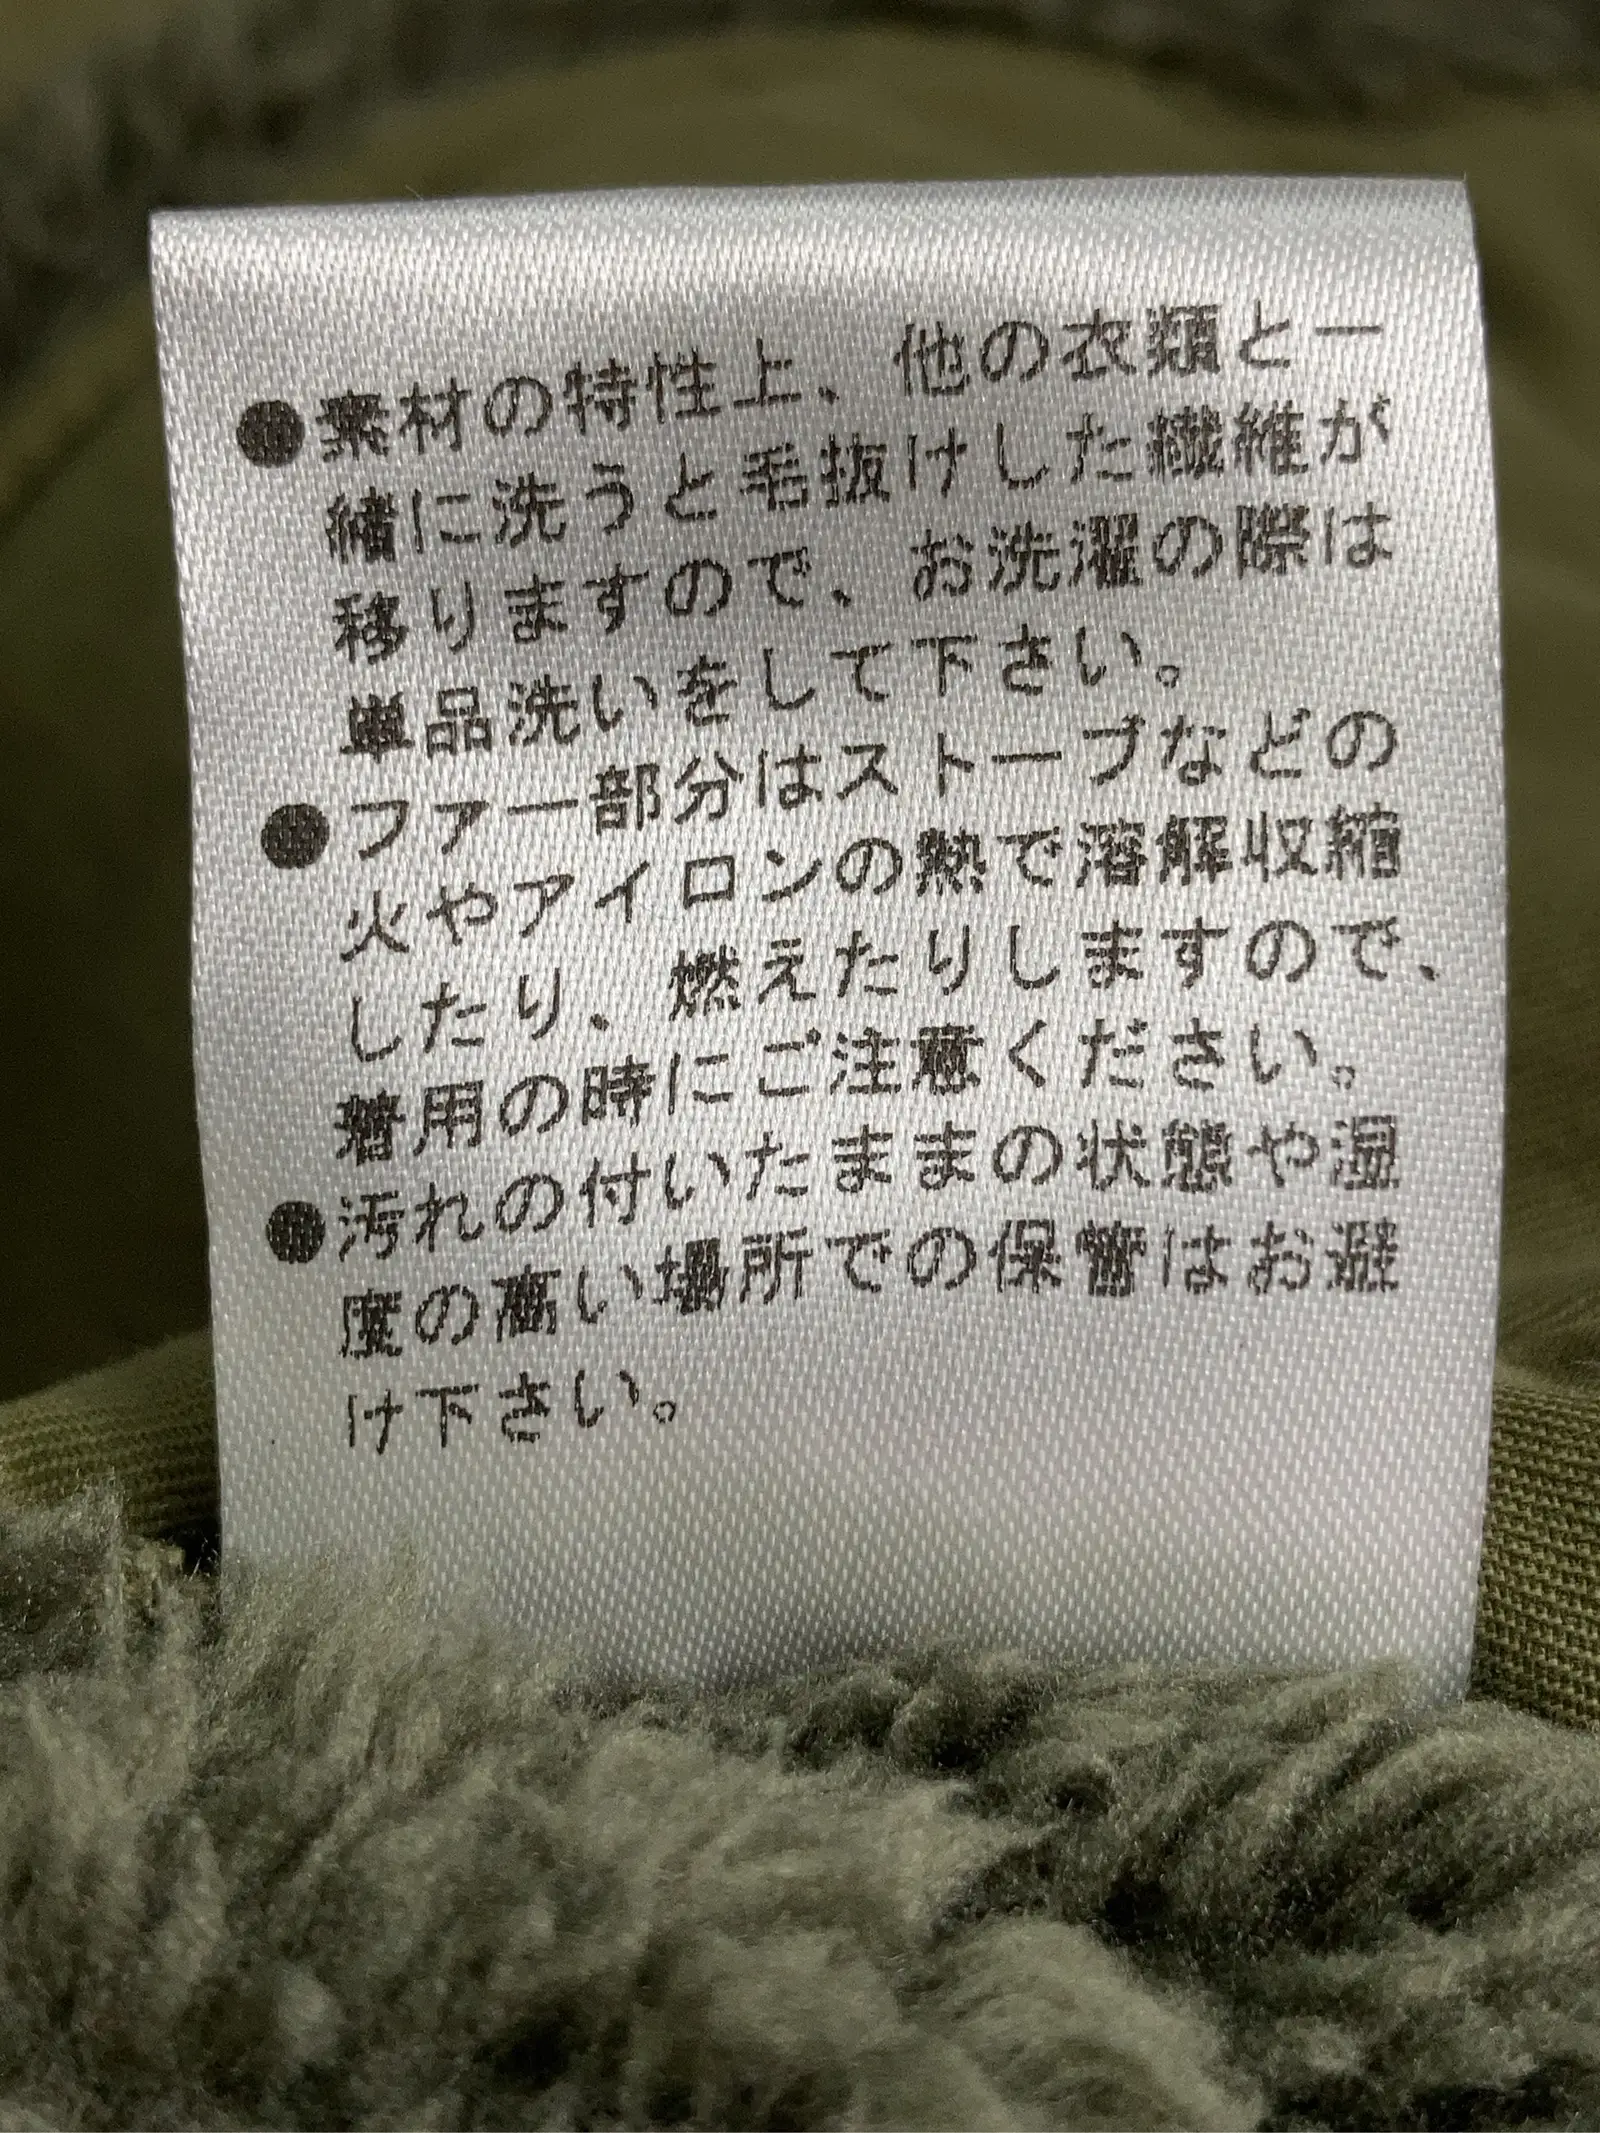 ●素材の特性上、他の衣類と一
緒に洗うと毛抜けした繊維が
移りますので、お洗濯の際は
単品洗いをして下さい。
●ファー部分はストーブなどの
火やアイロンの熱で溶解収縮
したり、燃えたりしますので、
着用の時にご注意ください。
●汚れの付いたままの状態や湿
度の高い場所での保管はお避
け下さい。